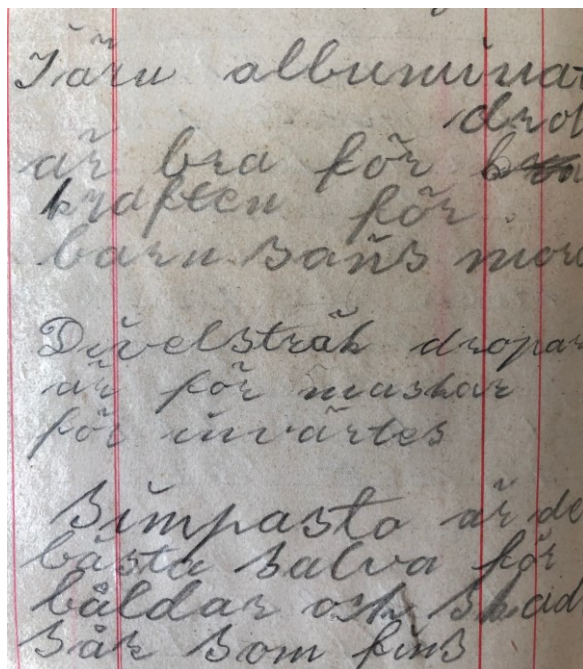 Järn albuminat
drop
är bra för
kraften för
barn sans mor
Divelsträk dropar
är för maskar
för invärtes
Simpasta är de
bästa salva för
båldar och skad
sår som fins